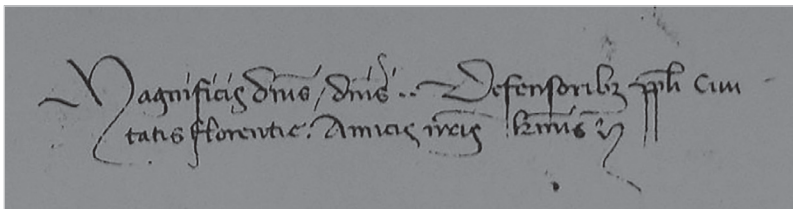 Magnificis dnis / dnis .. Defensoribz ppli Civi
tatis florentie. Amicis nrcis krmis